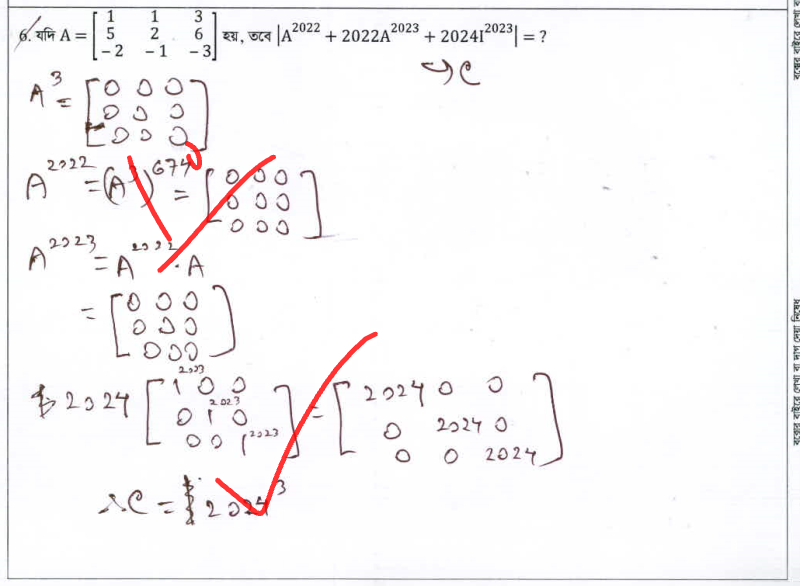 6. যদি A = [1 1 3
5 2 6
-2 -1 -3] হয়, তবে |A²⁰²² + 2022A²⁰²³ + 2024I²⁰²³| = ?
A³ = [0 0 0
0 0 0
0 0 0]
A²⁰²² = (A³)⁶⁷⁴ = [0 0 0
0 0 0
0 0 0]
A²⁰²³ = A²⁰²² · A
= [0 0 0
0 0 0
0 0 0]
2024 [1²⁰²³ 0 0
0 1²⁰²³ 0
0 0 1²⁰²³] = [2024 0 0
0 2024 0
0 0 2024]
= 2024³